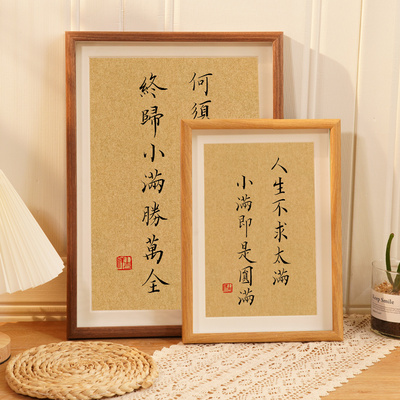 何須
終歸小滿勝萬全
人生不求太滿
小滿即是圓滿